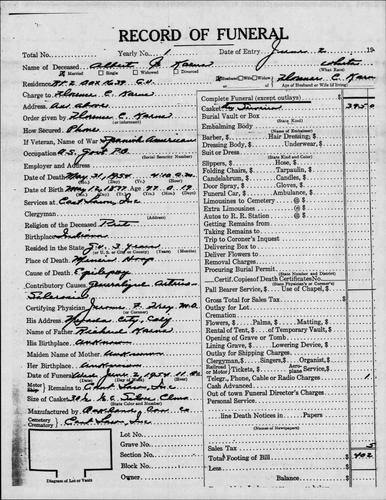 RECORD OF FUNERAL
Total No. Yearly No. 1 Date of Entry June 2 19
Name of Deceased Albert B. Karns White
(What Race)
Married Single Widowed Divorced Husband Wife Widow Florence C. Karn
Residence Rt. 2 Box 1638 Age of Husband or Wife (if living)
Charge to Florence C. Karns
Address as above
Order Given by Florence C. Karns
(or informant)
How Secured Phone
If Veteran, Name of War Spanish American
Occupation U.S. Govt P.O.
(Social Security Number)
Employer and Address
Date of Death May 31, 1954 4:10 A.M.
Date of Birth May 12, 1877 Age 77 0 19
Services at East Lawn, Inc.
Clergyman
Religion of the Deceased Prot.
Birthplace Indiana
Resided in the State 54. 3 years
Place of Death
Cause of Death Epilepsy
Contributory Causes Generalized Arterio-
Sclerosis
Certifying Physician Jerome F. M.D.
(or Coroner)
His Address City, Calif
Name of Father Richard Karns
His Birthplace Unknown
Maiden Name of Mother Unknown
Her Birthplace Unknown
Date of Funeral Wed June 2, 1954 11 A.
Remains to East Lawn, Inc.
Size of Casket
(State Color and Number)
Manufactured by
Cemetery
Crematory East Lawn, Inc
Diagram of Lot or Vault
Lot No.
Grave No.
Section No.
Block No.
Owner
Complete Funeral (except outlays) $
Casket 395 0
Burial Vault or Box
(State Kind)
Embalming Body
(Name of Embalmer)
Barber, $ Hair Dressing, $
Dressing Body, $ Underwear, $
Suit or Dress
(State Kind and Color)
Slippers, $ Hose, $
Folding Chairs, $ Tarpaulin, $
Candelabrum, $ Candles, $
Door Spray, $ Gloves, $
Funeral Car, $ Ambulance, $
Limousines to Cemetery @ $
Extra Limousines @ $
Autos to R. R. Station @ $
Getting Remains from
Taking Remains to
Trip to Coroner's Inquest
Delivering Box to
Deliver Flowers to
Removal Charges
Procuring Burial Permit
(State Number and District)
Certif. Copies of Death Certificates No.
(State Physician's or Coroner's)
Pall Bearer Service, $ Use of Chapel, $
Gross Total for Sales Tax $
Outlay for Lot
Cremation
Flowers, $ Palms, $ Matting, $
Rental of Tent, $ of Temporary Vault, $
Opening of Grave or Tomb
Lining Grave, $ Lowering Device, $
Outlay for Shipping Charges
Clergyman, $ Singers, $ Organist, $
Railroad Tickets, $ Aeroplane Service, $
Telegr., Phone, Cable or Radio Charges 1
Cash Advanced
Out of town Funeral Director's Charges
Personal Service
line Death Notices in Papers
(Names of Newspapers)
Sales Tax 5
Total Footing of Bill $ 402
Less $
Balance $